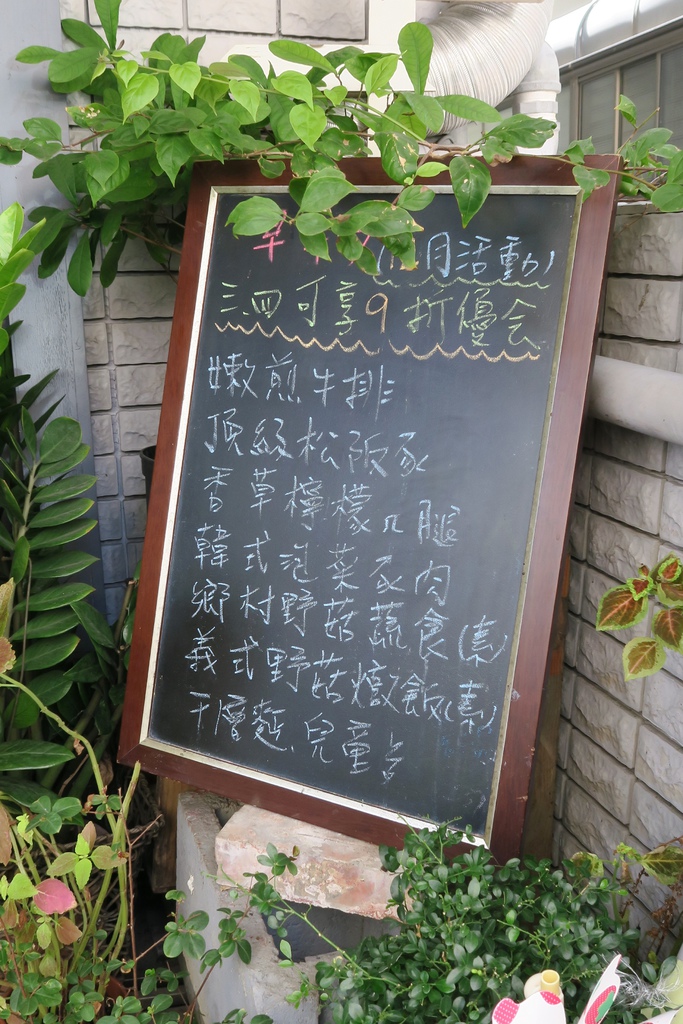 月活動
三.四可享9折優会
嫩煎牛排
頂級松阪豕
香草檸檬ㄇ腿
韓式泡菜豕肉
鄉村野菇蔬食(素)
義式野菇燉飯(素)
千層麵.兒童台